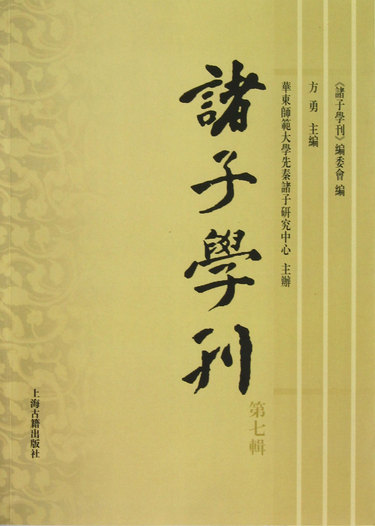 《諸子學刊》編委會 編
方 勇 主編
華東師範大學先秦諸子研究中心 主辦
諸子學刊
第七輯
上海古籍出版社